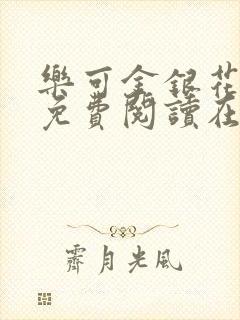 樂可金銀花
免費閱讀在
霽月光風